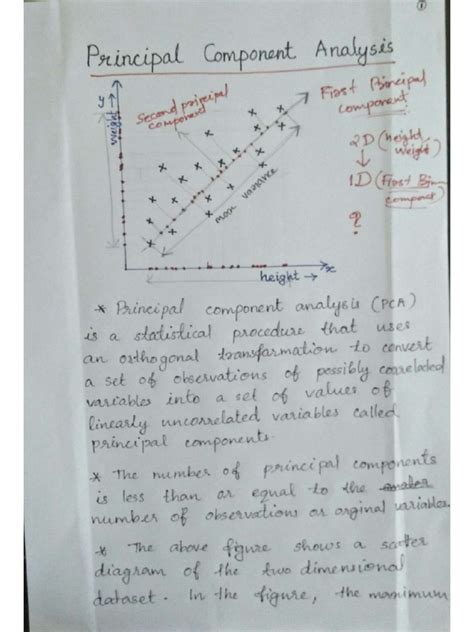 1
Principal Component Analysis
y →
weight →
Second principal
component
First Principal
component
max variance
2D (height
weight)
↓
1D (First
?
height → x
* Principal component analysis (PCA)
is a statistical procedure that uses
an orthogonal transformation to convert
a set of observations of possibly correlated
variables into a set of values of
linearly uncorrelated variables called
principal components.
* The number of principal components
is less than or equal to the
number of observations or orginal variables.
* The above figure shows a scatter
diagram of the two dimensional
dataset. In the figure, the maximum